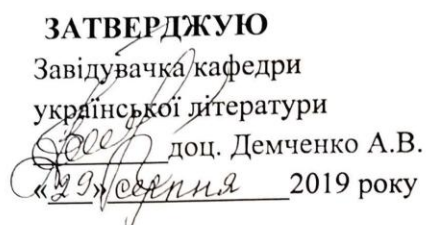 ЗАТВЕРДЖУЮ
Завідувачка кафедри
української літератури
доц. Демченко А.В.
«29» серпня 2019 року